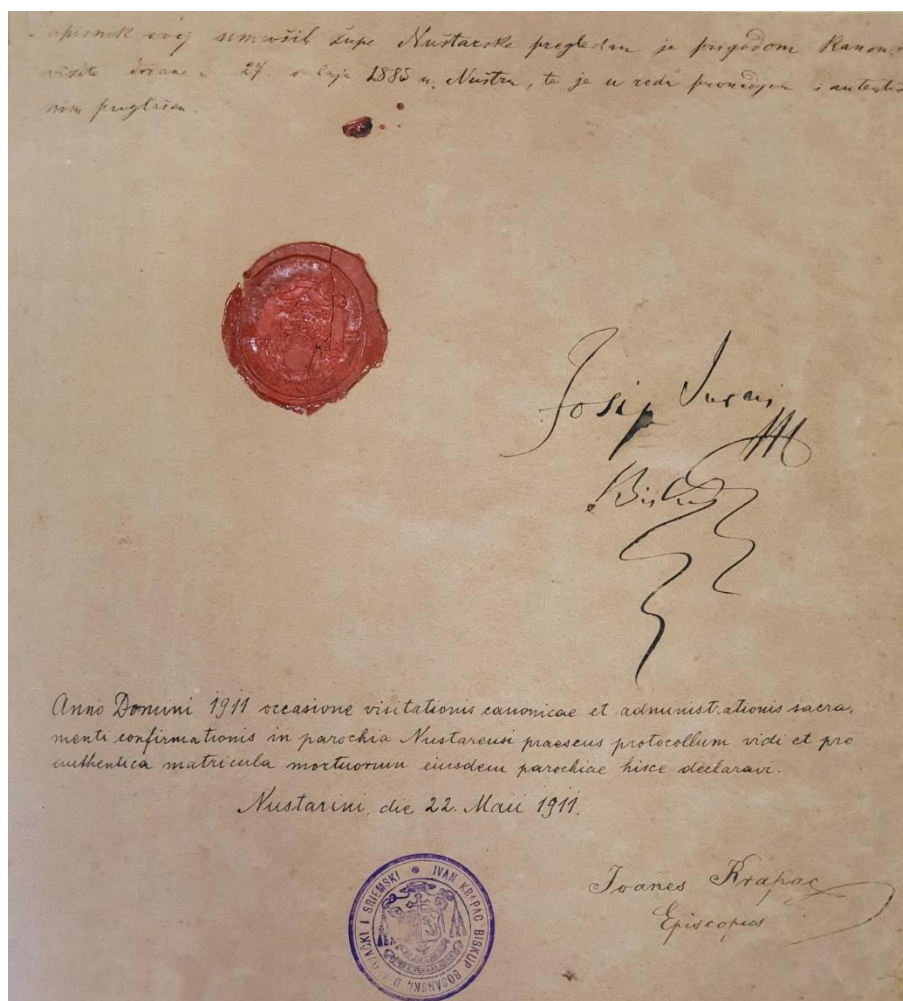 Zapisnik ovaj umrvših župe Nuštarske pregledan je prigodom Kanon.
visite držane u 27. 1883 u Nuštru, te je u redu pronadjen i
Josip
Anno Domini 1911 occasione visitationis canonicae et administrationis sacra,
menti confirmationis in parochia Nustarensi praesens protocollum vidi et pro
authentica matricula mortuorum eiusdem parochiae hisce declaravi.
Nustarini, die 22. Maii 1911.
Ioañes Krapac
Episcopus
IVAN KRAPAC BISKUP BOSANSKI, I SRIEMSKI